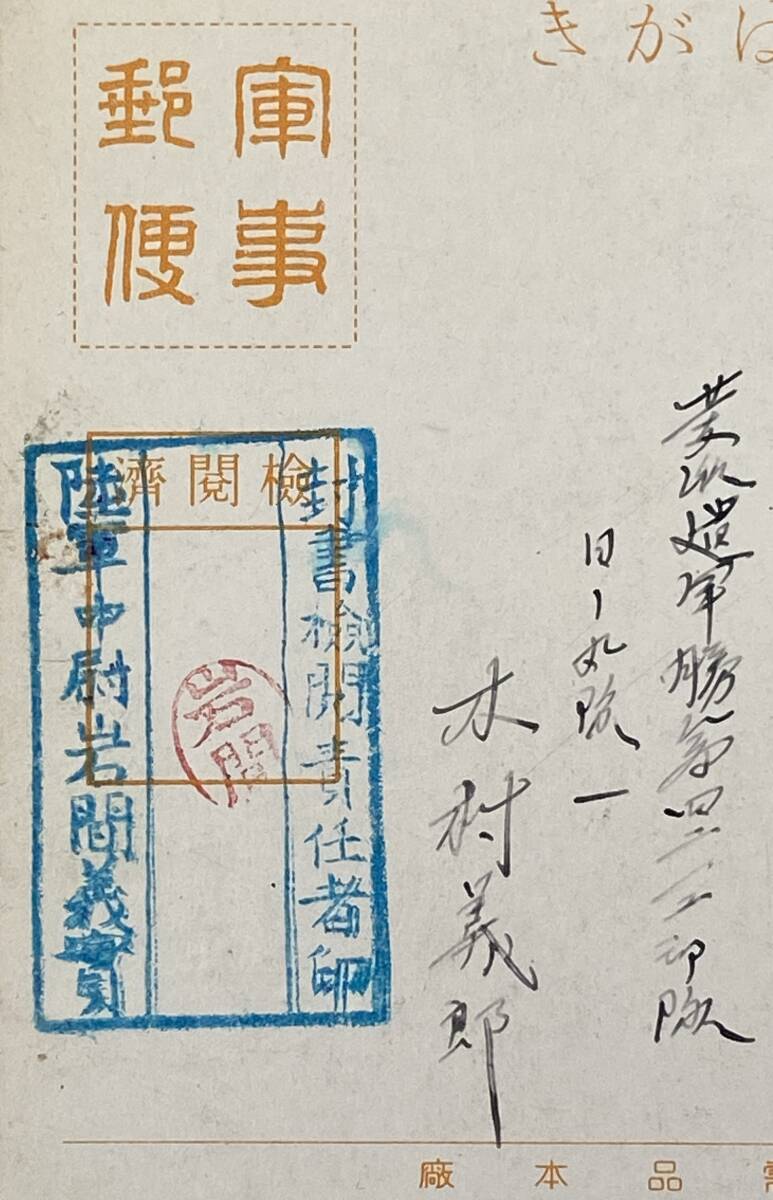 はがき
軍事
郵便
檢閲濟
封書檢閲責任者印
岩間
陸軍中尉岩間義實
派遣軍勝第四部隊
日ノ丸隊
木村義郎
品本廠